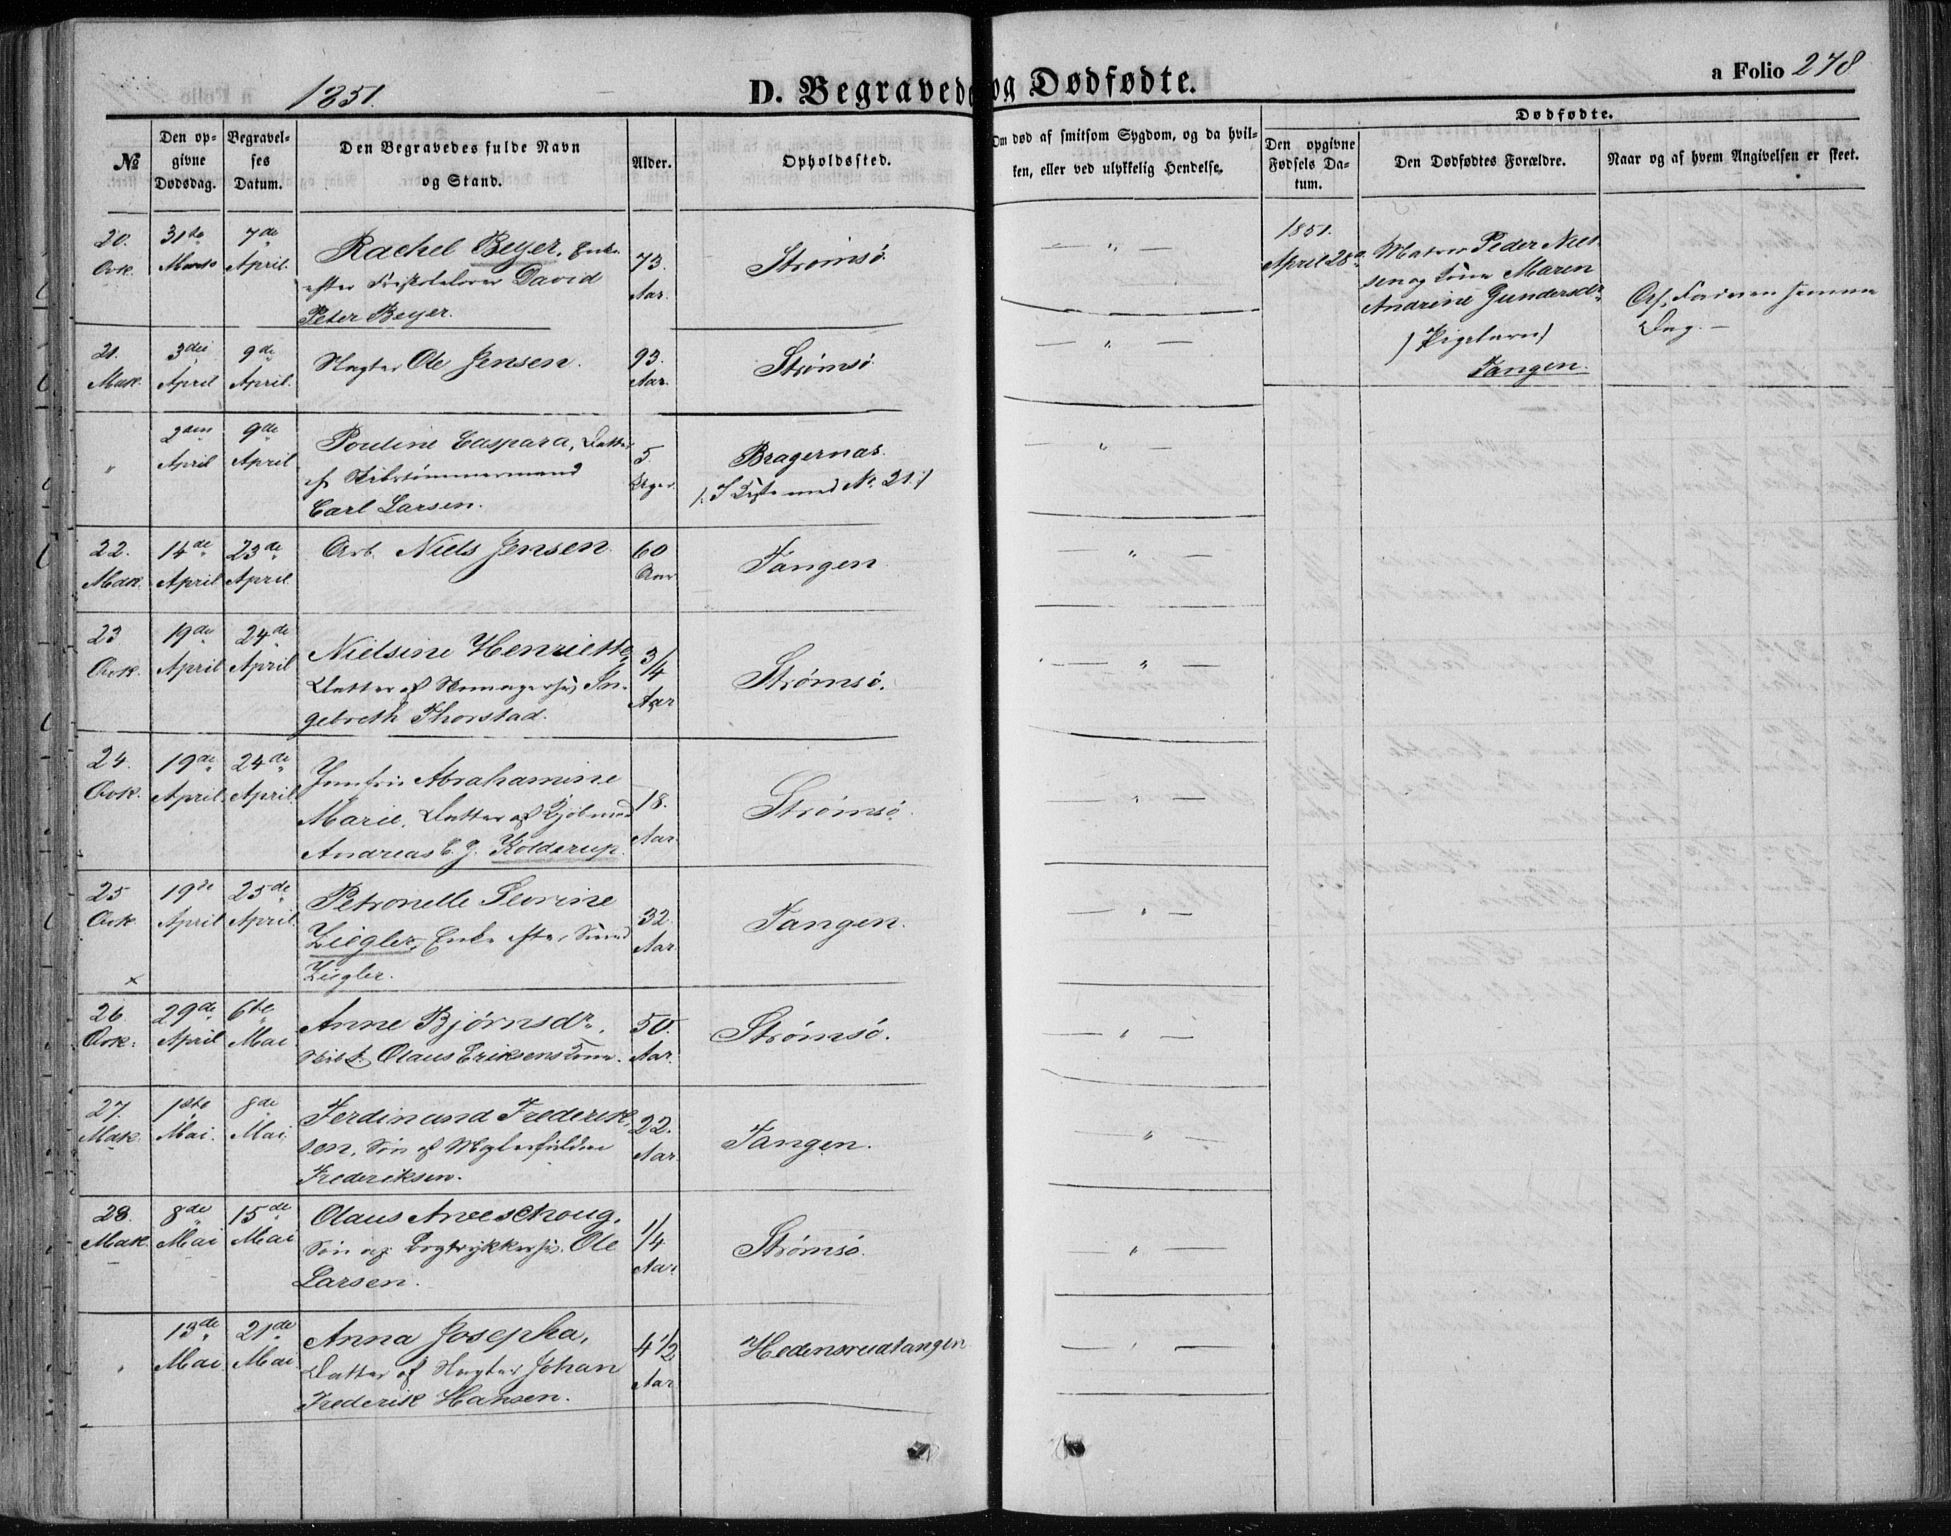 1851.
D. Begravede og Dødfødte.
a Folio 278
№
Den opgivne Dødsdag.
Begravelses Datum.
Den Begravedes fulde Navn og Stand.
Alder.
Opholdssted.
Om død af smitsom Sygdom, og da hvilken, eller ved ulykkelig Hendelse.
Dødfødte.
Den opgivne Fødsels Datum.
Den Dødfødtes Forældre.
Naar og af hvem Angivelsen er skeet.
20. 31te Marts 7de April.
Rachel Beyer, Enke
efter David
Peter Beyer.
73. Aar.
Strømsø
21. Mdk. 3die April 9de April.
Ole Jensen.
93. Aar.
Strømsø.
" 2den April 9de April
Pouline Caspara, Datter
af
Carl Larsen.
5 Dager
Bragernæs.
/: I Kiste med No. 21 :/
22. Mdk. 14de April 23de April
Arb. Niels Jensen
60 Aar
Tangen
23 19de April 24de April
Nielsine Henriette
Datter af In-
gebreth Thorstad.
3/4 Aar
Strømsø.
24. 19de April. 24de April.
Jomfru Abrahamine
Marie, Datter af Kjøbmand
Andreas C. J. Kolderup.
18. Aar.
Strømsø.
25 19de April 25de April.
Petronelle Severine
Ziegler, Enke efter
Ziegler.
32. Aar.
Tangen.
x
26 29de April 6te Mai
Anne Bjørnsdr.,
Olaus Eriksens Kone.
50. Aar.
Strømsø.
27. Mdk. 1ste Mai. 8de Mai
Ferdinand Frederik-
sen, Søn af
Frederiksen.
22. Aar.
Tangen.
28. Mdk. 8de Mai 15de Mai
Olaus Aneeskoug,
Søn af Bogtrykkersv. Ole
Larsen.
1/4 Aar
Strømsø.
" 13de Mai 21de Mai
Anna Josepha,
Datter af Johan
Frederik Hansen.
4 1/2 Aar
Hedensrudtangen
1851.
April 28de
Matros Peder Niel-
sen og Kone Maren
Andrine Gundersdr.
/Pigebarn/
Tangen.
Af Faderen samme
Dag. —